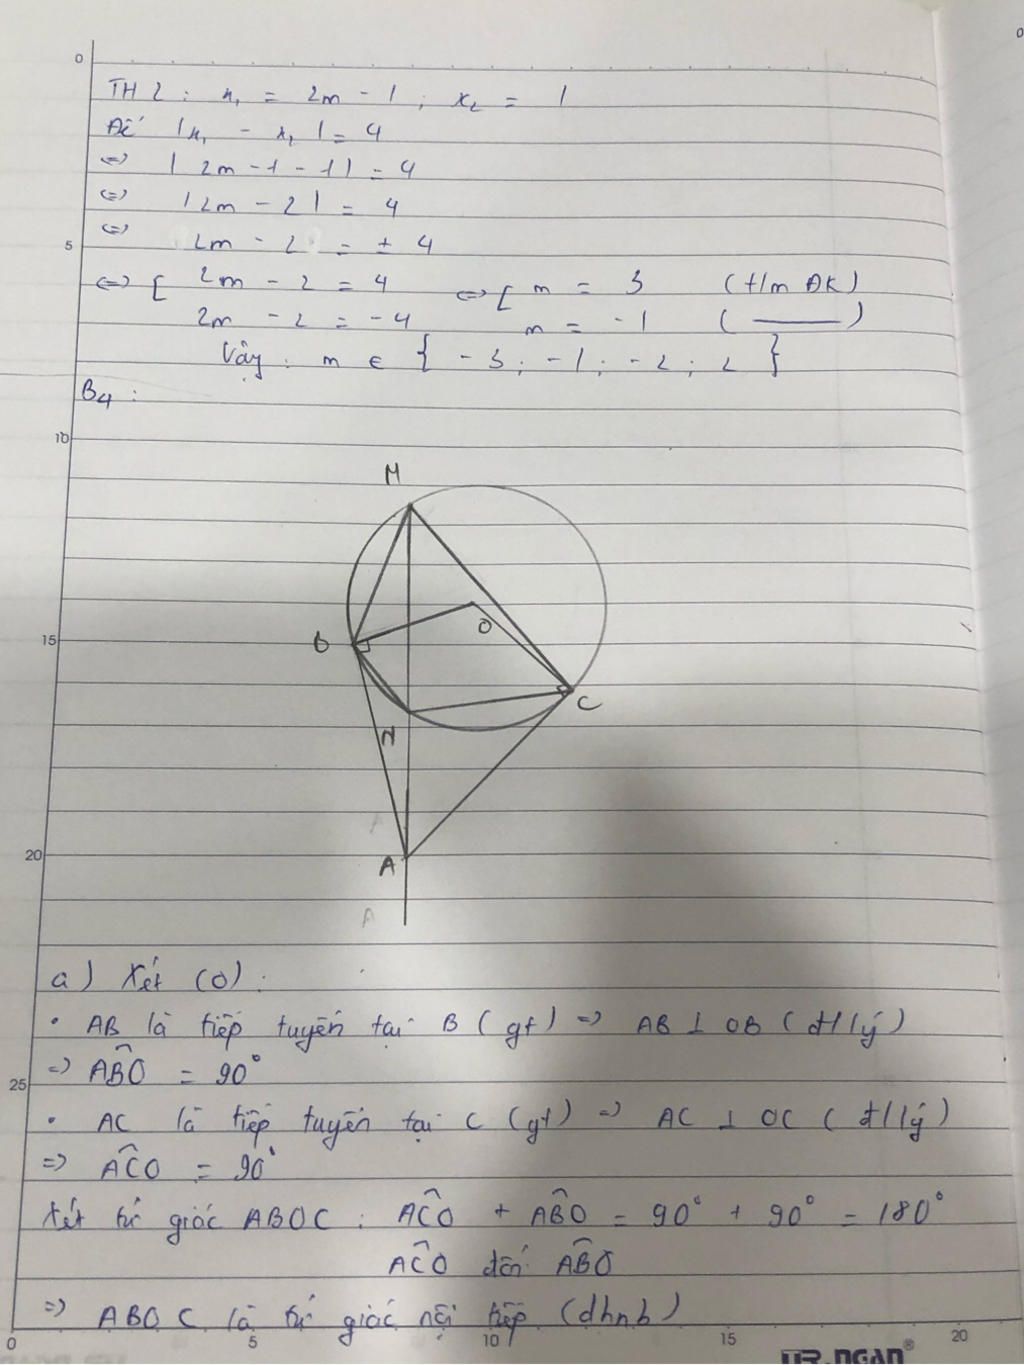 0
0
TH2 : x₁ = 2m - 1 ; x₂ = 1
Để |x₁ - x₂| = 4
<=> |2m - 1 - 1| = 4
<=> |2m - 2| = 4
<=> 2m - 2 = ± 4
5
<=> [ 2m - 2 = 4 <=> [ m = 3 (t/m ĐK)
2m - 2 = -4 m = -1 ( ——— )
Vậy : m ∈ { -3 ; -1 ; -2 ; 2 }
B4 :
10
M
15
B
O
C
I
20
A
A
A
a) Xét (O) :
• AB là tiếp tuyến tại B (gt) => AB ⊥ OB (đ/lý)
=> ABO = 90°
25
• AC là tiếp tuyến tại C (gt) => AC ⊥ OC (đ/lý)
=> ACO = 90°
Xét tứ giác ABOC : ACO + ABO = 90° + 90° = 180°
ACO đối ABO
=> ABOC là tứ giác nội tiếp (dhnb)
0 5 10 15 20